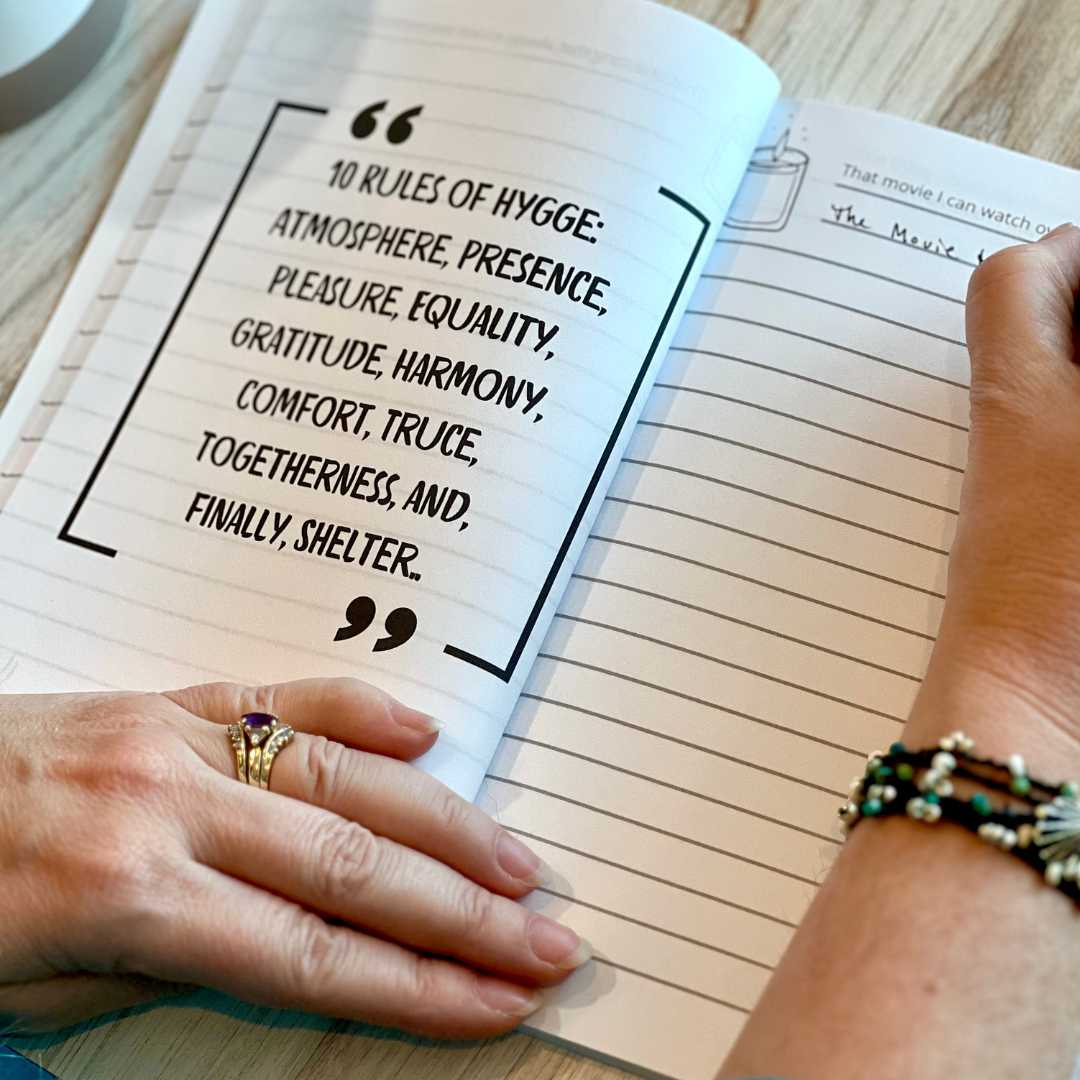 “
10 RULES OF HYGGE:
ATMOSPHERE, PRESENCE,
PLEASURE, EQUALITY,
GRATITUDE, HARMONY,
COMFORT, TRUCE,
TOGETHERNESS, AND,
FINALLY, SHELTER..
”
That movie I can watch
The Movie